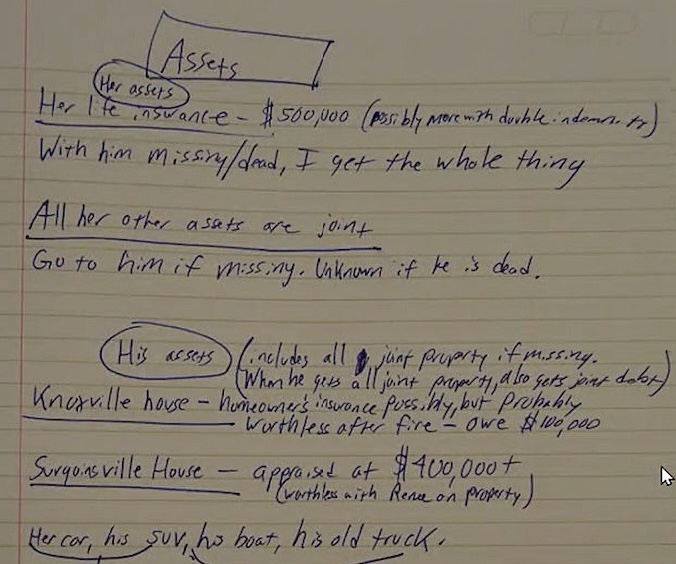 Assets
Her assets
Her life insurance - $500,000 (possibly more with double indemnity)
With him missing/dead, I get the whole thing
All her other assets are joint
Go to him if missing. Unknown if he is dead.
His assets (includes all joint property if missing.
(When he gets all joint property, also gets joint debt)
Knoxville house - homeowner's insurance possibly, but probably
worthless after fire - owe $100,000
Surgoinsville House - appraised at $400,000+
(worthless with Renee on property)
Her car, his SUV, his boat, his old truck.